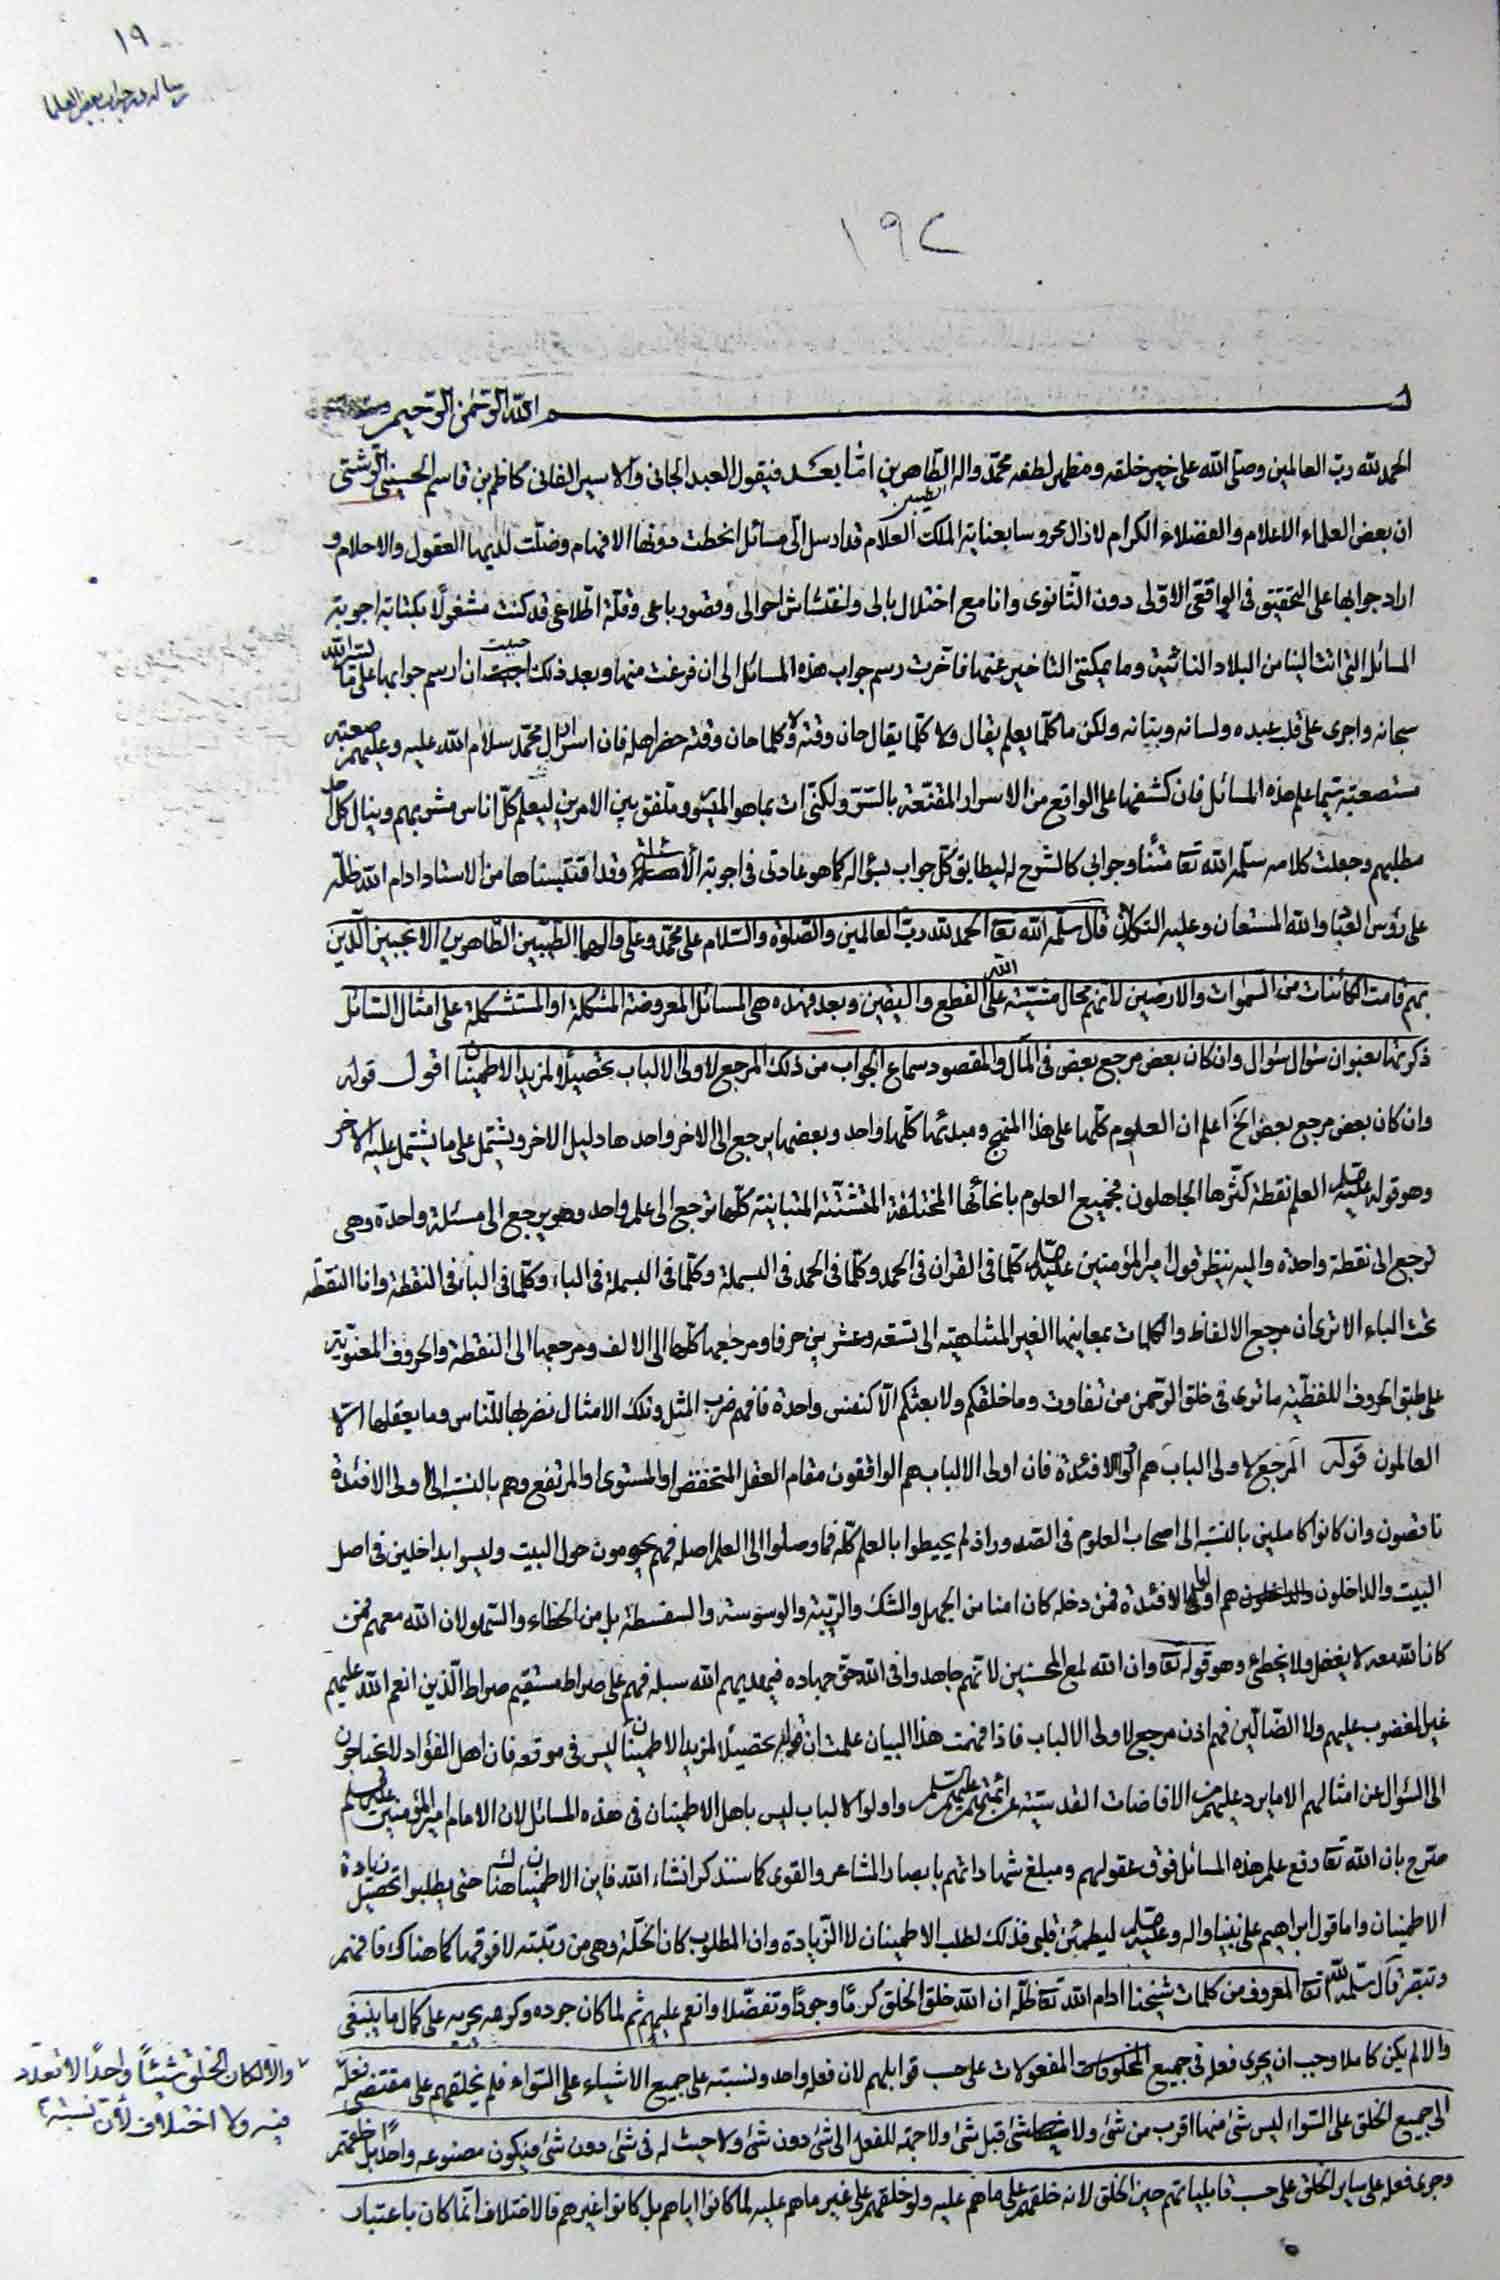 ١٩
رساله در جواب بعض العلما
١٩٢
بسم الله الرحمن الرحيم
الحمد لله رب العالمين وصلى الله على خير خلقه ومظهر لطفه محمد واله الطاهرين اما بعد فيقول العبد الجاني والاسير الفاني كاظم بن قاسم الحسيني الرشتي
الطيبين
ان بعض العلماء الاعلام والفضلاء الكرام لازال محروسا بعناية الملك العلام قد ارسل الى مسائل انحطت دونها الافهام وضلت لديها العقول والاحلام و
اراد جوابها على التحقيق في الواقعي الاولى دون الثانوى وانا مع اختلال بالى واغتشاش احوالى وقصور باعى وقلة اطلاعى قد كنت مشغولا بكتابة اجوبة
المسائل التي اتت الينا من البلاد النائية وما يمكنني التاخير عنها فاخرت رسم جواب هذه المسائل الى ان فرغت منها وبعد ذلك احببت ان ارسم جوابها على ما يسر الله
سبحانه واجرى على قلب عبده ولسانه وبنانه ولكن ما كلما يعلم يقال ولا كلما يقال حان وقته ولا كلما حان وقته حضر اهله فان اسرار ال محمد سلام الله عليه وعليهم صعبة
مستصعبة سيما علم هذه المسائل فان كشفها على الواقع من الاسرار المقنعة بالسر ولكني ات بما هو الميسور وملفق بين الامرين ليعلم كل اناس مشربهم وينال كل
مطلبهم وجعلت كلامه سلمه الله تعا متنا وجوابي كالشرح له ليطابق كل جواب بسؤاله كما هو عادتي في اجوبة وقد اقتبستها من الاستاد ادام الله ظله
على رؤس العباد والله المستعان وعليه التكلان قال سلمه الله تعا الحمد لله رب العالمين والصلوة والسلام على محمد وعلى والهما الطيبين الطاهرين الانجبين الذين
بهم قامت الكائنات من السموات والارضين لانهم محال مشية الله على القطع واليقين وبعد فهذه هى المسائل المعروضة المشكلة او المستشكلة على امثال السائل
ذكرتها بعنوان سؤال سؤال وان كان بعض مرجع بعض في المآل والمقصود سماع الجواب من ذلك المرجع لاولى الالباب تحصيلا لمزيد الاطمينان اقول قوله
وان كان بعض مرجع بعض الخ اعلم ان العلوم كلها على هذا المنهج ومبدئها كلها واحد وبعضها يرجع الى الاخر واحدها دليل الاخر ويشتمل على ما يشتمل عليه الاخر
وهو قوله عليه السلام العلم نقطة كثرها الجاهلون فجميع العلوم بانحائها المختلفة المتشتتة المتباينة كلها ترجع الى علم واحد وهو يرجع الى مسئلة واحدة وهى
ترجع الى نقطة واحدة واليه ينظر قول امير المؤمنين عليه السلام كلما في القران في الحمد وكلما في الحمد في البسملة وكلما في البسملة في الباء وكلما في الباء في النقطة وانا النقطة
تحت الباء الا ترى ان مرجع الالفاظ والكلمات بمعانيها الغير المتناهية الى تسعة وعشرين حرفا ومرجعها كلها الى الالف ومرجعها الى النقطة والحروف المعنوية
على طبق الحروف اللفظية ما ترى في خلق الرحمن من تفاوت وما خلقكم ولا بعثكم الا كنفس واحدة فافهم ضرب المثل وتلك الامثال نضربها للناس وما يعقلها الا
العالمون قوله المرجع لاولى الباب هم اولوا الافئدة فان اولى الالباب هم الواقفون مقام العقل المنخفض او المستوى او المرتفع وهم بالنسبة الى اولى الافئدة
ناقصون وان كانوا كاملين بالنسبة الى اصحاب العلوم في الصدور اذ لم يحيطوا بالعلم كله فما وصلوا الى العلم اصله فهم يحومون حول البيت وليسوا بداخلين في اصل
البيت والداخلون هم اولوا الافئدة فمن دخله كان امنا من الجهل والشك والريبة والوسوسة والسفسطة بل من الخطاء والسهو لان الله معهم فمن
كان الله معه لا يغفل ولا يخطئ وهو قوله تعا وان الله لمع المحسنين لانهم جاهدوا في الله حق جهاده فيهديهم الله سبله فهم على صراط مستقيم صراط الذين انعم الله عليهم
غير المغضوب عليهم ولا الضالين فهم اذن مرجع لاولى الالباب فاذا فهمت هذا البيان علمت ان قوله تحصيلا لمزيد الاطمينان ليس في موقعه فان اهل الفؤاد لا يحتاجون
الى السؤال عن امثالهم الا ما يرد عليهم من الافاضات القدسية عن ائمتهم عليهم السلم واولوا الالباب ليس باهل الاطمينان في هذه المسائل لان الامام امير المؤمنين عليه السلم
صرح بان الله تعا رفع علم هذه المسائل فوق عقولهم ومبلغ شهاداتهم بابصار المشاعر والقوى كما سنذكر انشاء الله فاين الاطمينان هناك حتى يطلبوا تحصيل زيادة
الاطمينان واما قول ابراهيم على نبينا واله وعليه السلام ليطمئن قلبى فذلك لطلب الاطمينان لا الزيادة وان المطلوب كان الخلة وهى من رتبته لا فوقها كما هناك فافهم
وتبصر قال سلمه الله تعا المعروف من كلمات شيخنا ادام الله تعا ظله ان الله خلق الخلق كرما وجودا وتفضلا وانعم عليهم ثم لما كان جوده وكرمه يجريه على كمال ما ينبغى
والا لم يكن كاملا وجب ان يجرى فعله في جميع المخلوقات المفعولات على حسب قوابلهم لان فعله واحد ونسبته على جميع الاشياء على السواء فلم يخلقهم على مقتضى فعله
والا لكان الخلق شيئا واحدا لا تعدد
فيه ولا اختلاف لان نسبة
الى جميع الخلق على السواء ليس شئ منها اقرب من شئ ولا شئ قبل شئ ولا جهة للفعل الى شئ دون شئ ولا حيث له في شئ دون شئ فيكون مصنوعه واحدا بل خلقهم
وجرى فعله على ساير الخلق على حسب قابلياتهم حين الخلق لانه خلقهم على ما هم عليه ولو خلقهم على غير ما هم عليه لما كانوا اياهم بل كانوا غيرهم فالاختلاف انما كان باعتبار